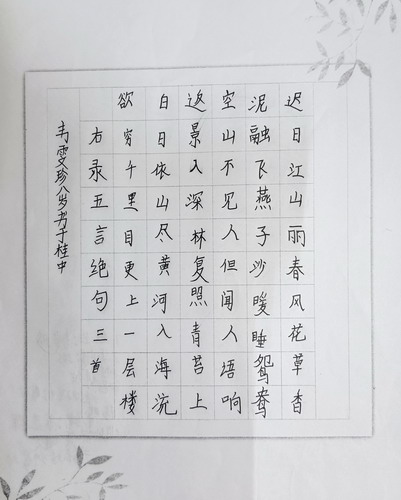 迟日江山丽春风花草香
泥融飞燕子沙暖睡鸳鸯
空山不见人但闻人语响
返景入深林复照青苔上
白日依山尽黄河入海流
欲穷千里目更上一层楼
右录五言绝句三首
韦雯珍八岁书于桂中